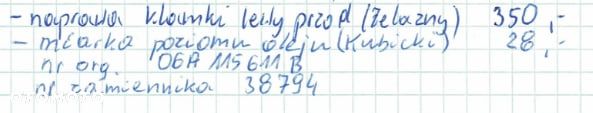 - naprawa klamki lewy przód (Żelazny) 350,-
- miarka poziomu oleju (Kubicki) 28,-
nr org. 06A 115 611 B
nr zamiennika 38794